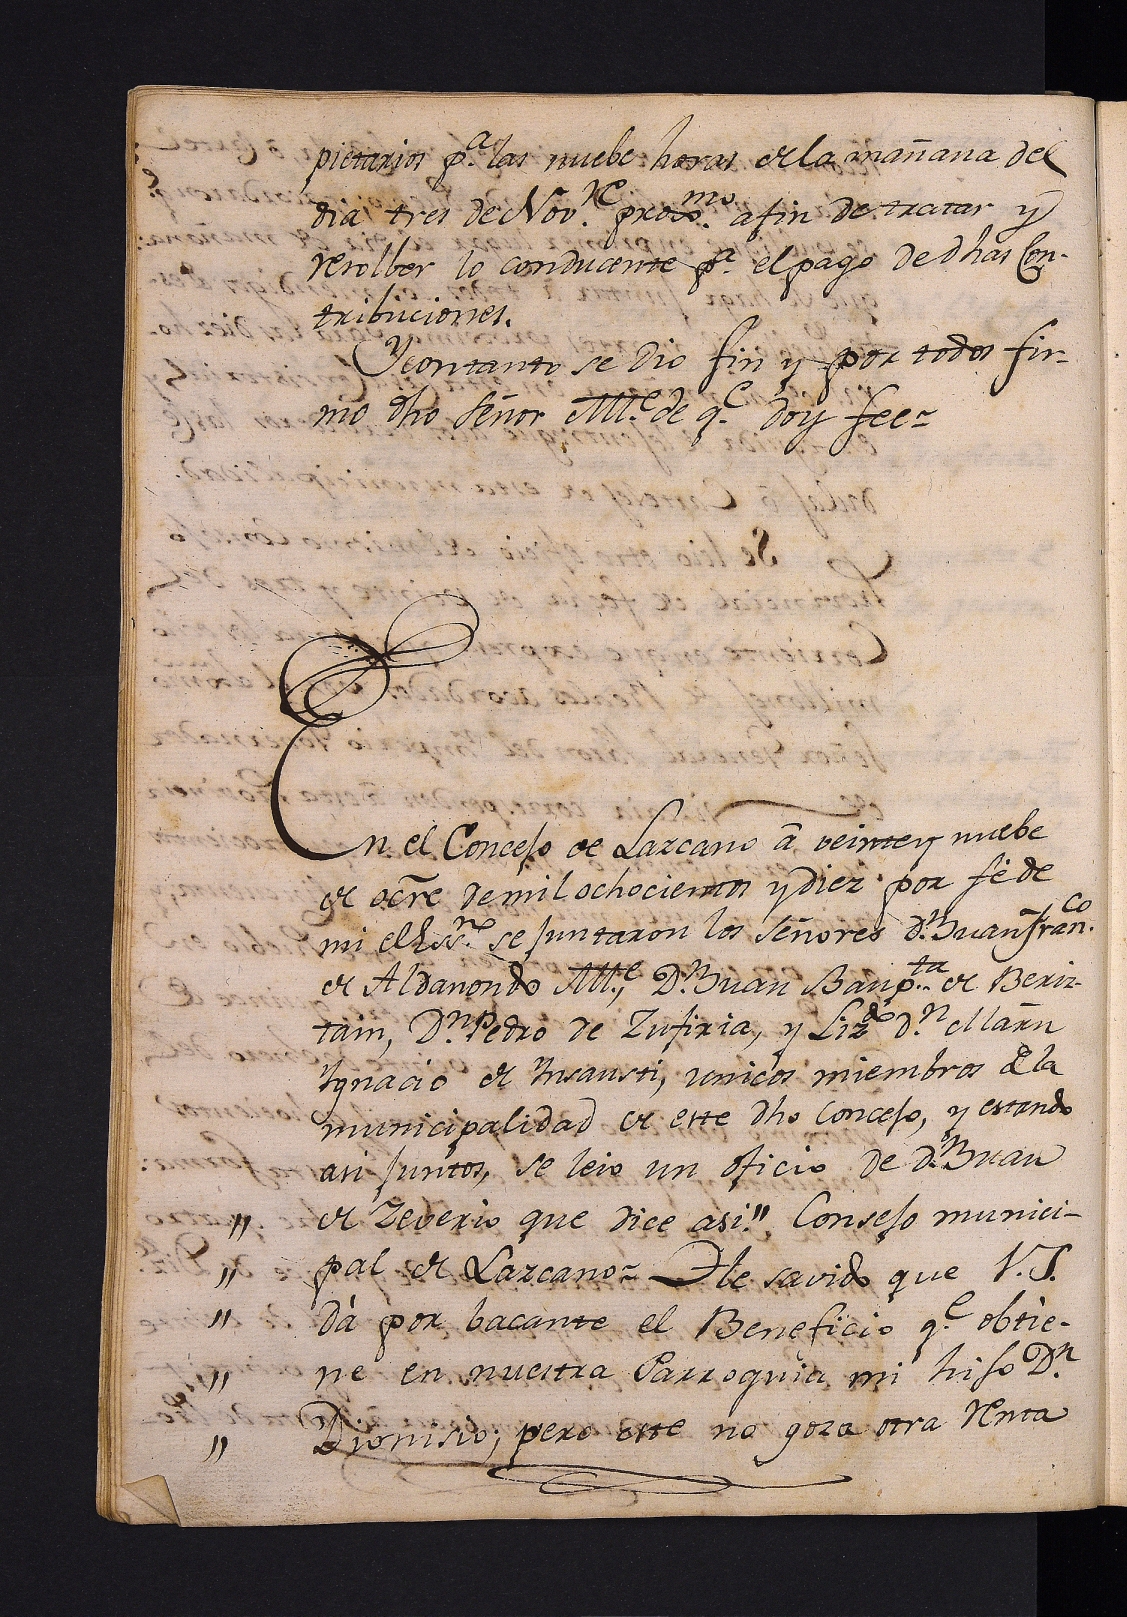 pietarios p.ª las nuebe horas de la mañana del
dia tres de Nov.re proxo.mo afin de tratar y
resolber lo conducente p.ª el pago de dhas Con-
tribuciones.
Y con tanto se dio fin y por todos fir-
mó dho señor Alt.e de q.e doy fee=
En el Concejo de Lazcano â veinte y nuebe
de oct̄re de mil ochocientos y diez por fé de
mi el Ess.no se juntaron los señores d.n Juan Fran.co
de Aldanondo Alt.e, D.n Juan Baup.ta de Beriz-
tain, D.n Pedro de Zufiria, y Liz.do d.n Marn̄
Ygnacio de Ynsausti, unicos miembros de la
municipalidad de este dho Concejo, y estando
asi juntos, se leio un oficio de d.n Juan
" de Zeverio que dice asi." Consejo munici-
" pal de Lazcano= He savido que V.S.
" dà por bacante el Beneficio q.e obtie-
" ne en nuestra Parroquia mi hijo D.n
" Dionisio; pero este no goza otra renta